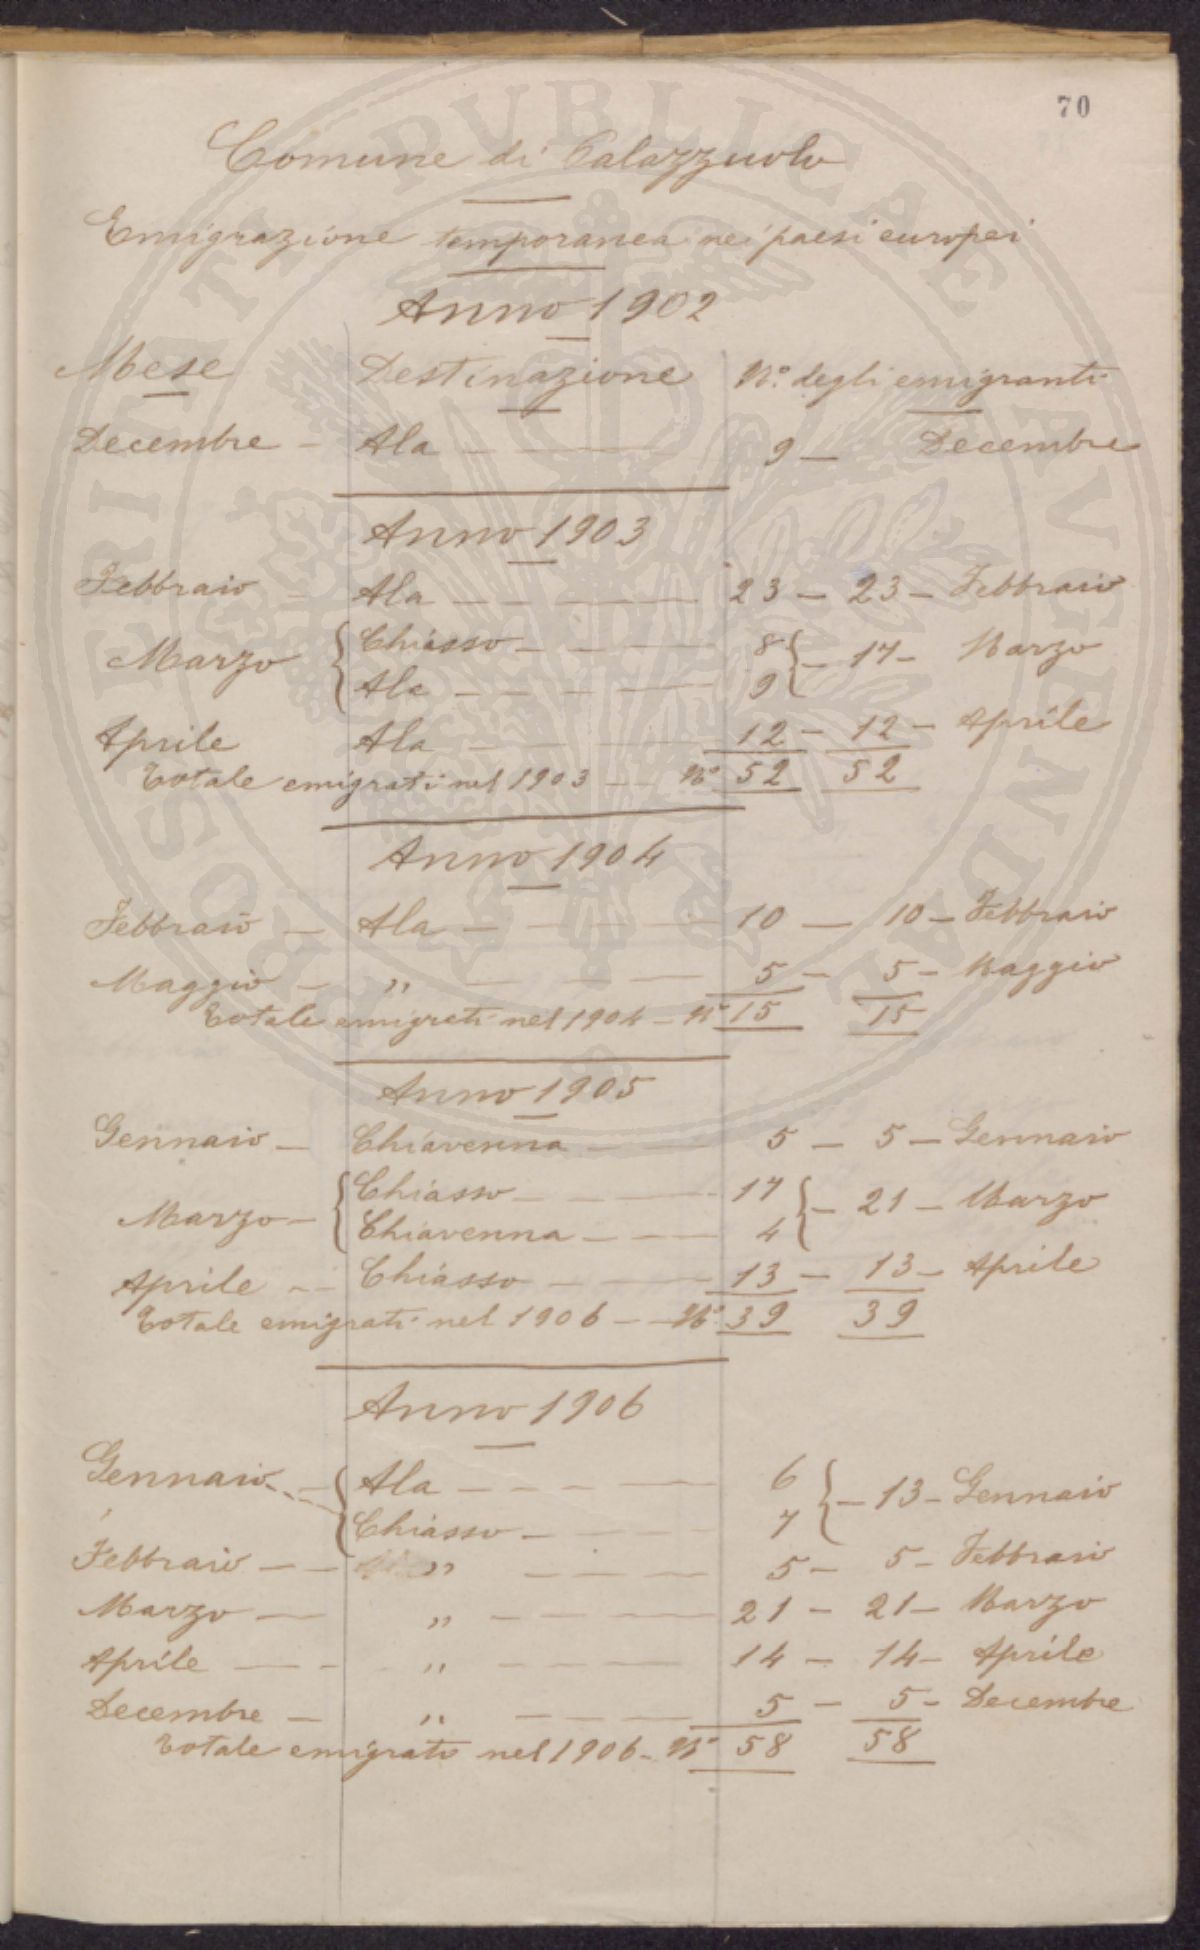 70
Comune di Palazzuolo
Emigrazione temporanea nei paesi europei
Anno 1902
Mese Destinazione N.º degli emigranti
Decembre - Ala - 9 - Decembre
Anno 1903
Febbraio - Ala - 23 - 23 - Febbraio
Marzo { Chiasso - 8 } - 17 - Marzo
Ala - 9
Aprile Ala - 12 - 12 - Aprile
Totale emigrati nel 1903 - Nº 52 52
Anno 1904
Febbraio - Ala - 10 - 10 - Febbraio
Maggio - " - 5 - 5 - Maggio
Totale emigrati nel 1904 - Nº 15 15
Anno 1905
Gennaio - Chiavenna - 5 - 5 - Gennaio
Marzo - { Chiasso - 17 } - 21 - Marzo
Chiavenna - 4
Aprile - Chiasso - 13 - 13 - Aprile
Totale emigrati nel 1906 - Nº 39 39
Anno 1906
Gennaio - { Ala - 6 } - 13 - Gennaio
Chiasso - 7
Febbraio - " - 5 - 5 - Febbraio
Marzo - " - 21 - 21 - Marzo
Aprile - " - 14 - 14 - Aprile
Decembre - " - 5 - 5 - Decembre
Totale emigrati nel 1906 - Nº 58 58
PROSPERITATI PUBLICAE AUGENDAE